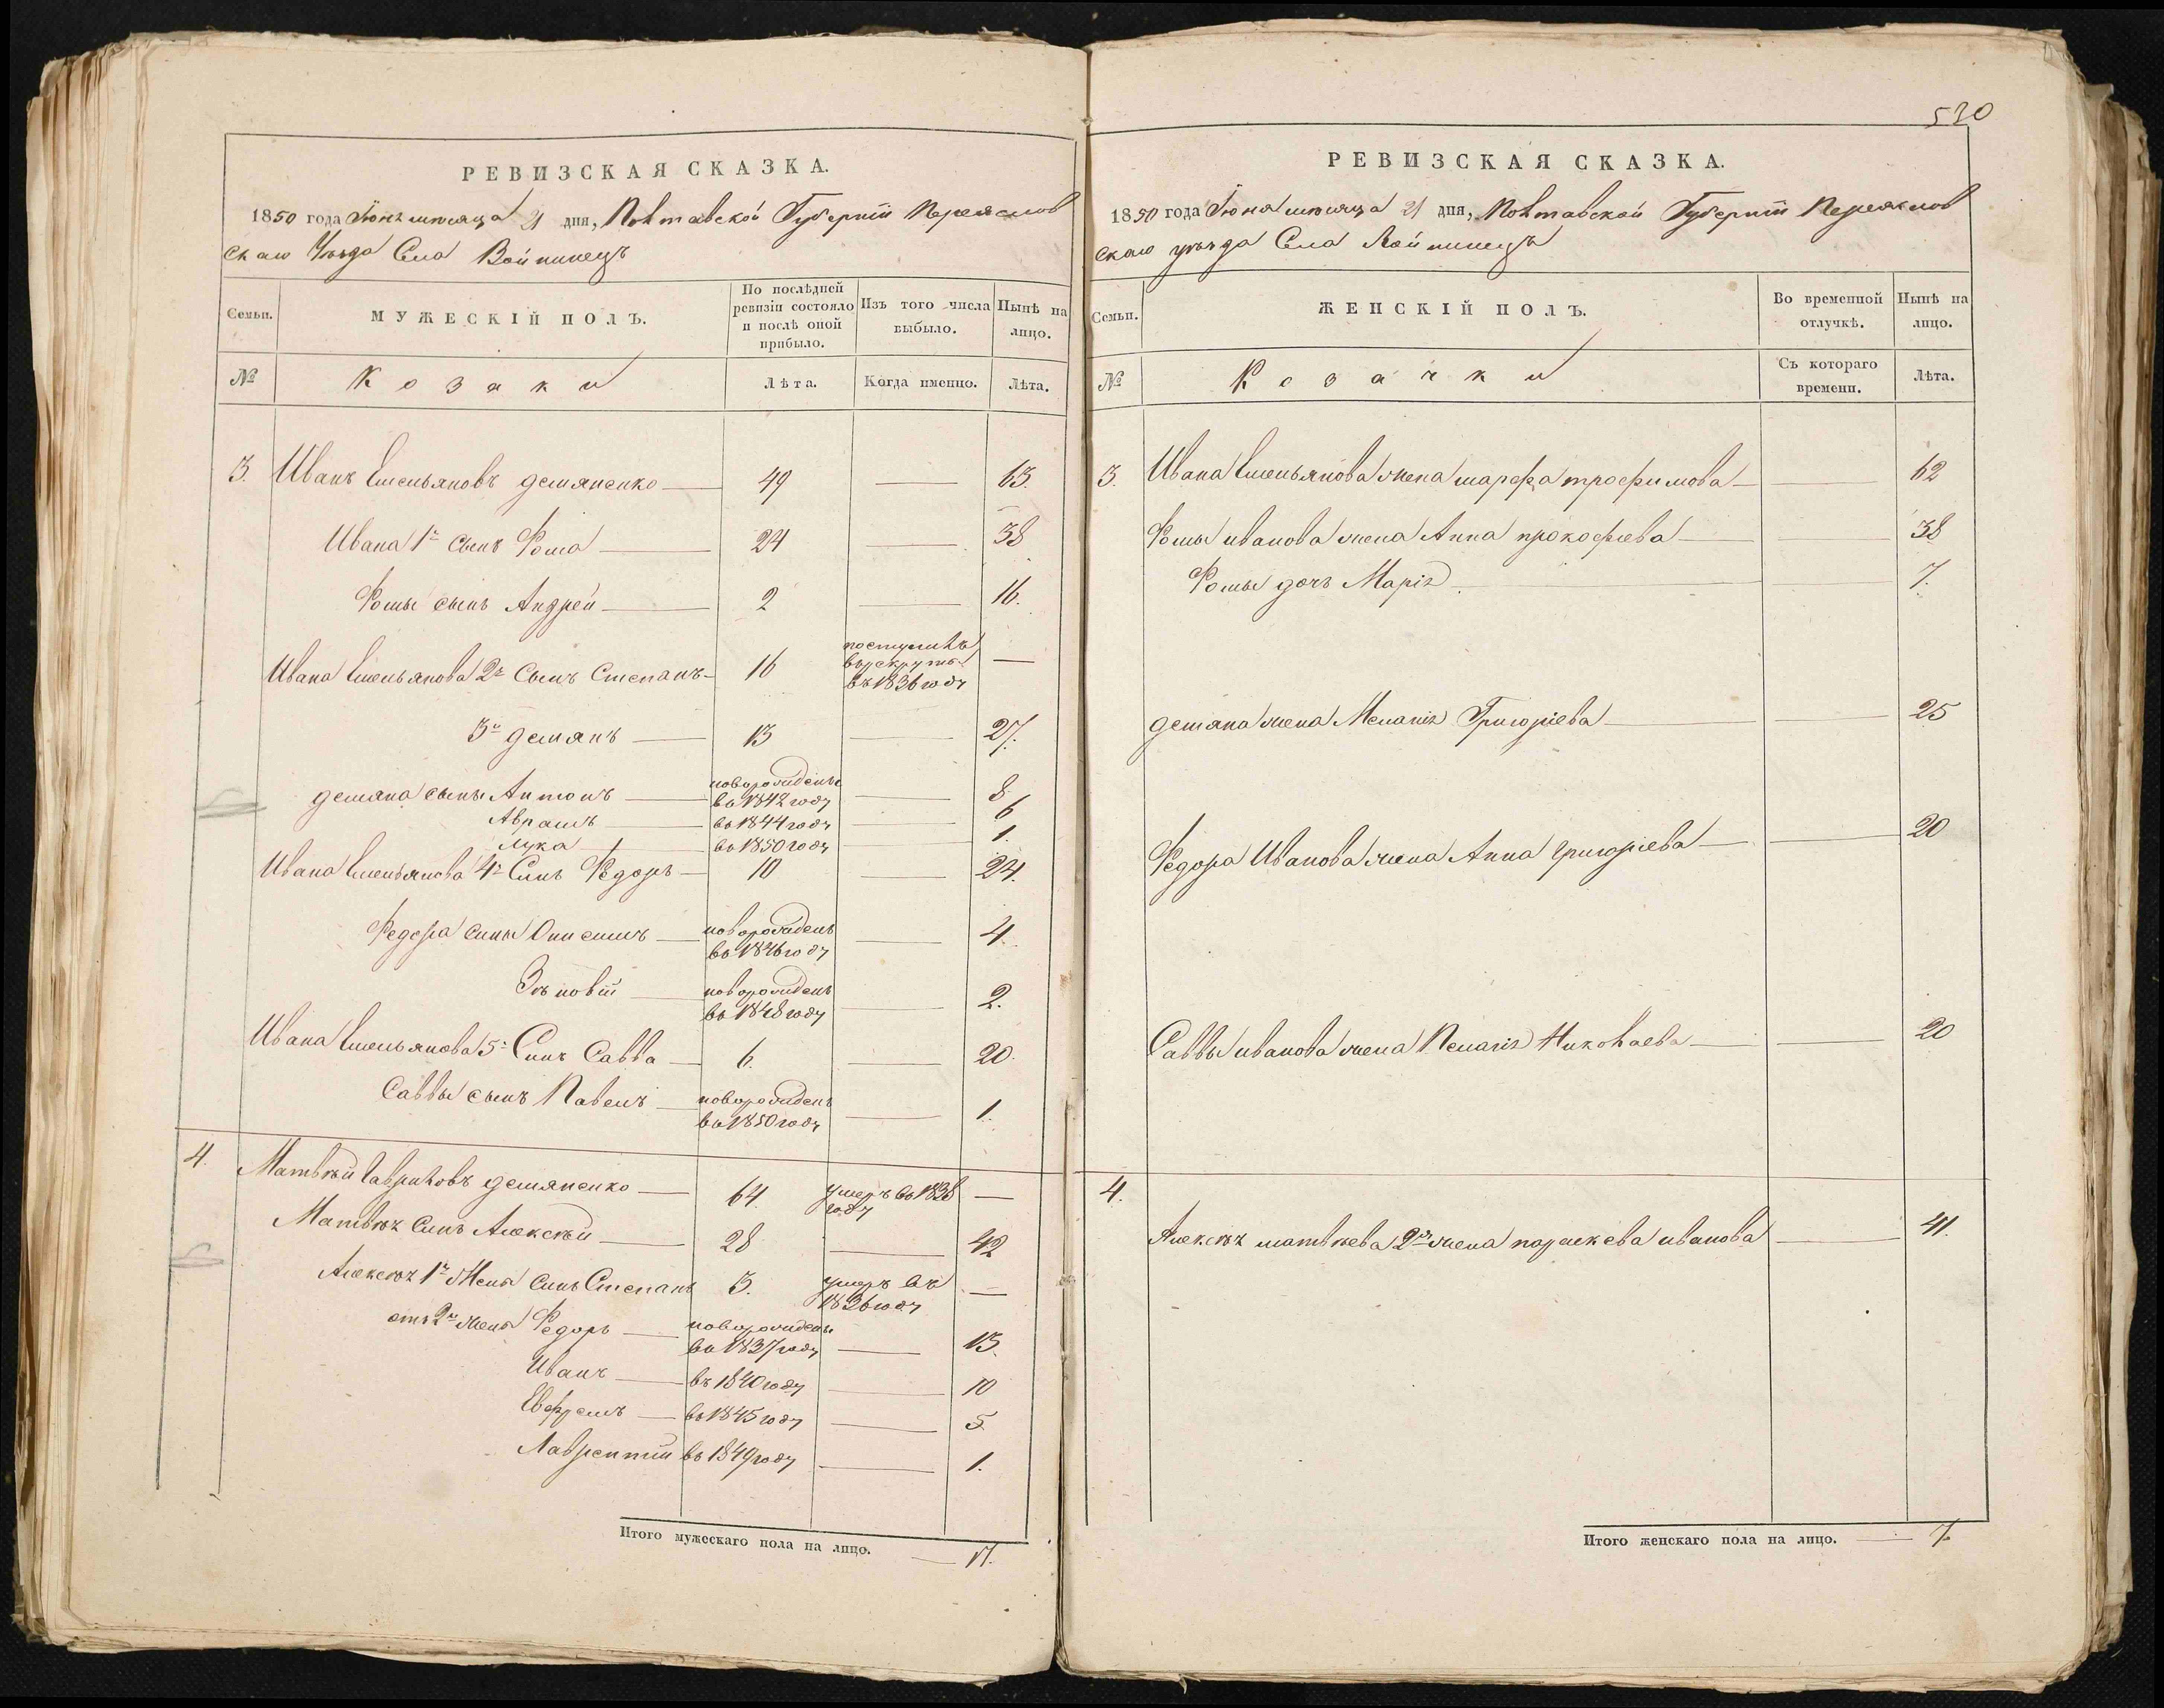 530
РЕВИЗСКАЯ СКАЗКА.
1850 года Іюнь мѣсяца 21 дня, Полтавской Губерніи Переяслов
скаго Уѣзда Села Войнинецъ
Семьи.
МУЖЕСКІЙ ПОЛЪ.
По послѣдней ревизіи состояло и послѣ оной прибыло.
Изъ того числа выбыло.
Нынѣ на лицо.
№
Козаки
Лѣта.
Когда именно.
Лѣта.
3. Иванъ Емельяновъ демяненко — 49 — 63.
Ивана 1й сынъ Фома — 24 — 38
Фомы сынъ Андрей — 2 — 16.
Ивана Емельянова 2й Сынъ Степанъ — 16 поступилъ въ рекруты въ 1836 году —
3й демянъ — 13 — 27.
демяна сыны Антонъ — новорожденъ во 1842 году — 8
Аврамъ — во 1844 году — 6
Лука — во 1850 году — 1.
Ивана Емельянова 4й Сынъ Федоръ — 10 — 24.
Федора сыны Онисимъ — новорожденъ во 1846 году — 4.
Зѣновій — новорожденъ во 1848 году — 2.
Ивана Емельянова 5й Сынъ Савва — 6. — 20.
Саввы сынъ Павелъ — новорожденъ во 1850 году — 1.
4. Матвѣй Гавриловъ демяненко — 64. умеръ во 1838 году —
Матвѣя Сынъ Алексѣй — 28 — 42
Алексѣя 1й Жены сынъ Степанъ 3. умеръ въ 1836 году —
отъ 2й жены Федоръ — новорожденъ во 1837 году — 13.
Иванъ — въ 1840 году — 10
Евфремъ — во 1845 году — 5.
Лаврентій въ 1849 году — 1.
Итого мужескаго пола на лицо. — 17.
РЕВИЗСКАЯ СКАЗКА.
1850 года Іюня мѣсяца 21 дня, Полтавской Губерніи Переяслов
скаго уѣзда Села Войнинецъ
Семьи.
ЖЕНСКІЙ ПОЛЪ.
Во временной отлучкѣ.
Нынѣ на лицо.
№
Козачки
Съ котораго времени.
Лѣта.
3. Ивана Емельянова жена марфа трофимова — 62
Фомы иванова жена Анна прокофіева — 38
Фомы дочь Марія — 7.
демяна жена Меланія Григоріева — 25
Федора Иванова жена Анна григоріева — 20
Саввы иванова жена Пелагія Николаева — 20
4. Алексѣя матвѣева 2я жена параскева иванова — 41.
Итого женскаго пола на лицо. — 7.